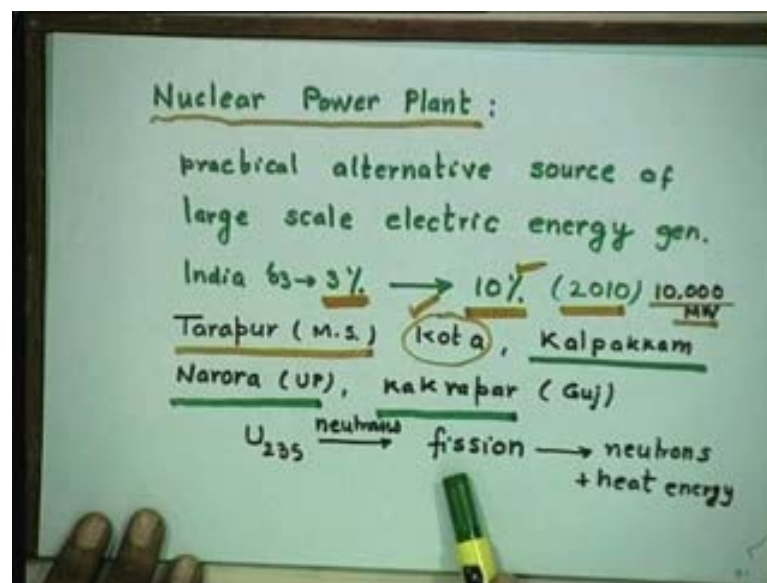 Nuclear Power Plant :
practical alternative source of
large scale electric energy gen.
India 63→ 3% → 10% (2010) 10.000 MW
Tarapur ( M.S. ) Kota , Kalpakkam
Narora (UP), Kakrapar ( Guj)
U235 neutrons → fission → neutrons
+ heat energy